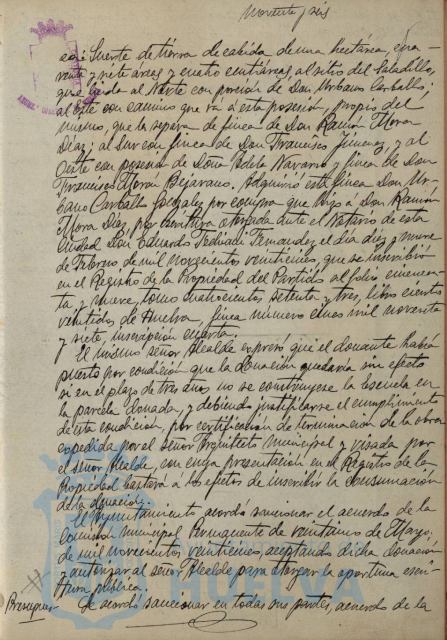 Noventa y seis
es: Suerte de tierra de cabida de una hectárea, cua-
renta y siete áreas y cuatro centiáreas, al sitio del Saladillo,
que linda al Norte con porción de Don Urbano Carballo;
al Este con camino que vá á esta posesión, propio del
mismo, que la separa de finca de Don Ramón Mora
Díaz; al Sur con finca de Don Francisco Jimenez, y al
Oeste con posesión de Doña Adela Navarro y finca de Don
Francisco Moran Bejarano. Adquirió esta finca Don Ur-
bano Carballo González por compra que hizo a Don Ramón
Mora Díaz, por escritura otorgada ante el Notario de esta
Ciudad Don Eduardo Fernandez el día diez y nueve
de Febrero de mil novecientos veintiseis, que se inscribió
en el Registro de la Propiedad del Partido al folio cincuen-
ta y nueve, tomo cuatrocientos setenta y tres, libro ciento
veintidos de Huelva, finca número cinco mil noventa
y siete, inscripción cuarta.
El mismo señor Alcalde expresó que el donante había
puesto por condición que la donación quedaría sin efecto
si en el plazo de tres años no se construyese la escuela en
la parcela donada, y debiendo justificarse el cumplimiento
de esta condición, por certificación de terminación de la obra
expedida por el señor Arquitecto municipal y visada por
el señor Alcalde, con cuya presentación en el Registro de la
Propiedad bastará a los efectos de inscribir la consumación
de la donación.
El Ayuntamiento acordó sancionar el acuerdo de la
Comisión municipal Permanente de veintiuno de Mayo
de mil novecientos veintiseis, aceptando dicha donación
y autorizar al señor Alcalde para otorgar la oportuna escri-
tura pública.
Se acordó sancionar en todas sus partes, acuerdo de la
HUELVA